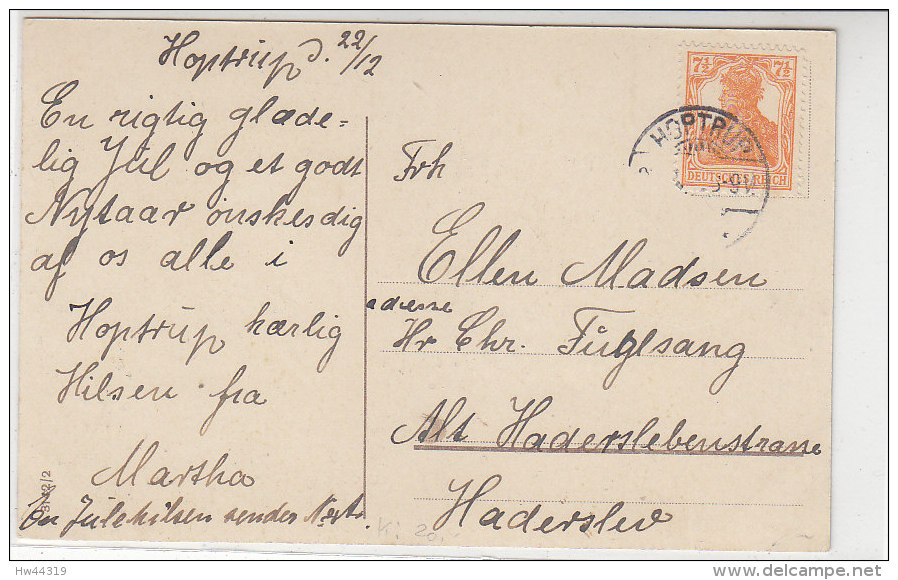 Hoptrup d. 22/12
En rigtig glæde=
lig Jul og et godt
Nytaar ønskes dig
af os alle i
Hoptrup kærlig
Hilsen fra
Martha
En Julehilsen sender
Frh
Ellen Madsen
adresse
Hr Chr. Fuglsang
Alt Haderslebenstrasse
Haderslev
7½ 7½
DEUTSCHES REICH
HOPTRUP
Hw44319
www.delcampe.net